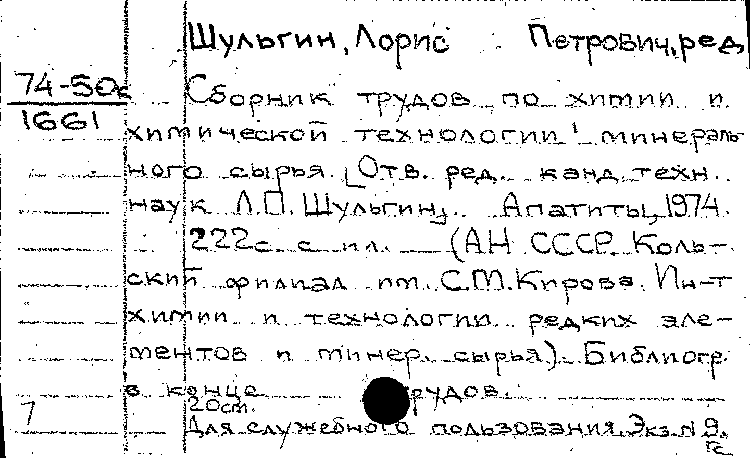 Шульгин, Лорис Петрович, ред.
74-50с
1661
Сборник трудов по химии и
химической технологии минераль-
ного сырья. [Отв. ред. канд. техн.
наук Л.П. Шульгин]. Апатиты, 1974.
222с. с ил. (АН СССР. Коль-
ский филиал им. С.М. Кирова. Ин-т
химии и технологии редких эле-
ментов и минер. сырья). Библиогр.
в конце трудов.
20см.
7
Для служебного пользования. Экз. N 9.